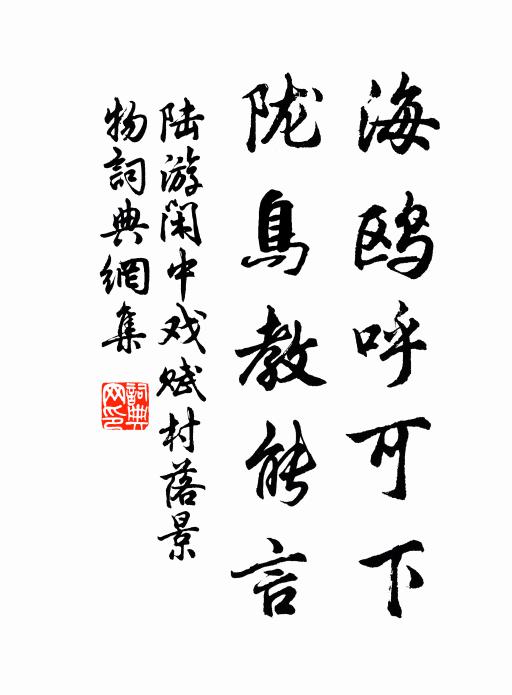 海鸥呼可下
陇鸟教能言
陆游闲中戏赋村落景
物詞典網集
詞典网印